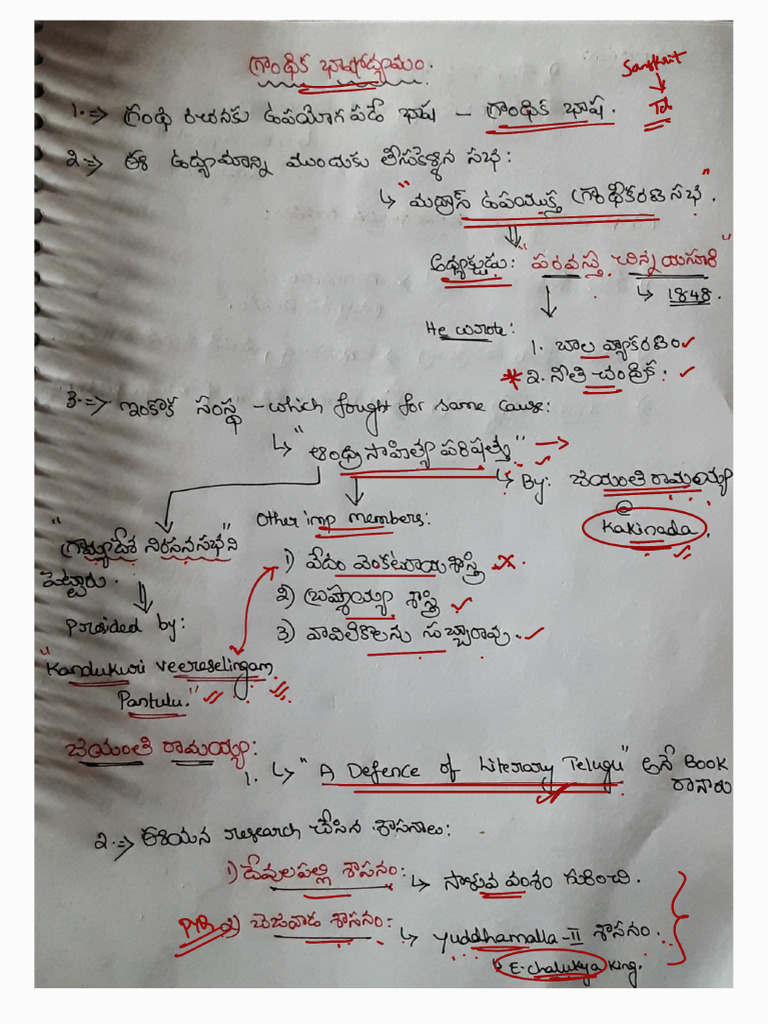 గ్రాంథిక భాషోద్యమం.
Sanskrit
Tel
1.⇒ గ్రంథ రచనకు ఉపయోగపడే భాష – గ్రాంథిక భాష.
2.⇒ ఈ ఉద్యమాన్ని ముందుకు తీసుకెళ్ళిన సభ:
↳ "మద్రాస్ ఉపయుక్త గ్రాంథికరణ సభ".
అధ్యక్షుడు: "పరవస్తు చిన్నయసూరి"
↳ 1848.
He wrote:
1. బాల వ్యాకరణం ✓
* 2. నీతి చంద్రిక: ✓
3.⇒ ఇంకొక సంస్థ – which fought for same cause:
↳ "ఆంధ్ర సాహిత్య పరిషత్తు" →
↳ By: జయంతి రామయ్య
@
Kakinada.
"గ్రామ్యాదేశ నిరసన సభ"ని
పెట్టారు.
Other imp members:
1) వేదం వెంకటరాయ శాస్త్రి ×.
2) బ్రహ్మయ్య శాస్త్రి ✓
3) వావిలికొలను సుబ్బారావు. ✓
Presided by:
"Kandukuri veereselingam
Pantulu."
జయంతి రామయ్య:
1. ↳ "A Defence of Literary Telugu" అనే BOOK
రాసారు
2.⇒ ఈయన research చేసిన శాసనాలు:
1) దేవులపల్లి శాసనం: ↳ సాళువ వంశం గురించి.
PYQ 2) బెజవాడ శాసనం: ↳ Yuddhamalla-II శాసనం.
↳ E.chalukya king.